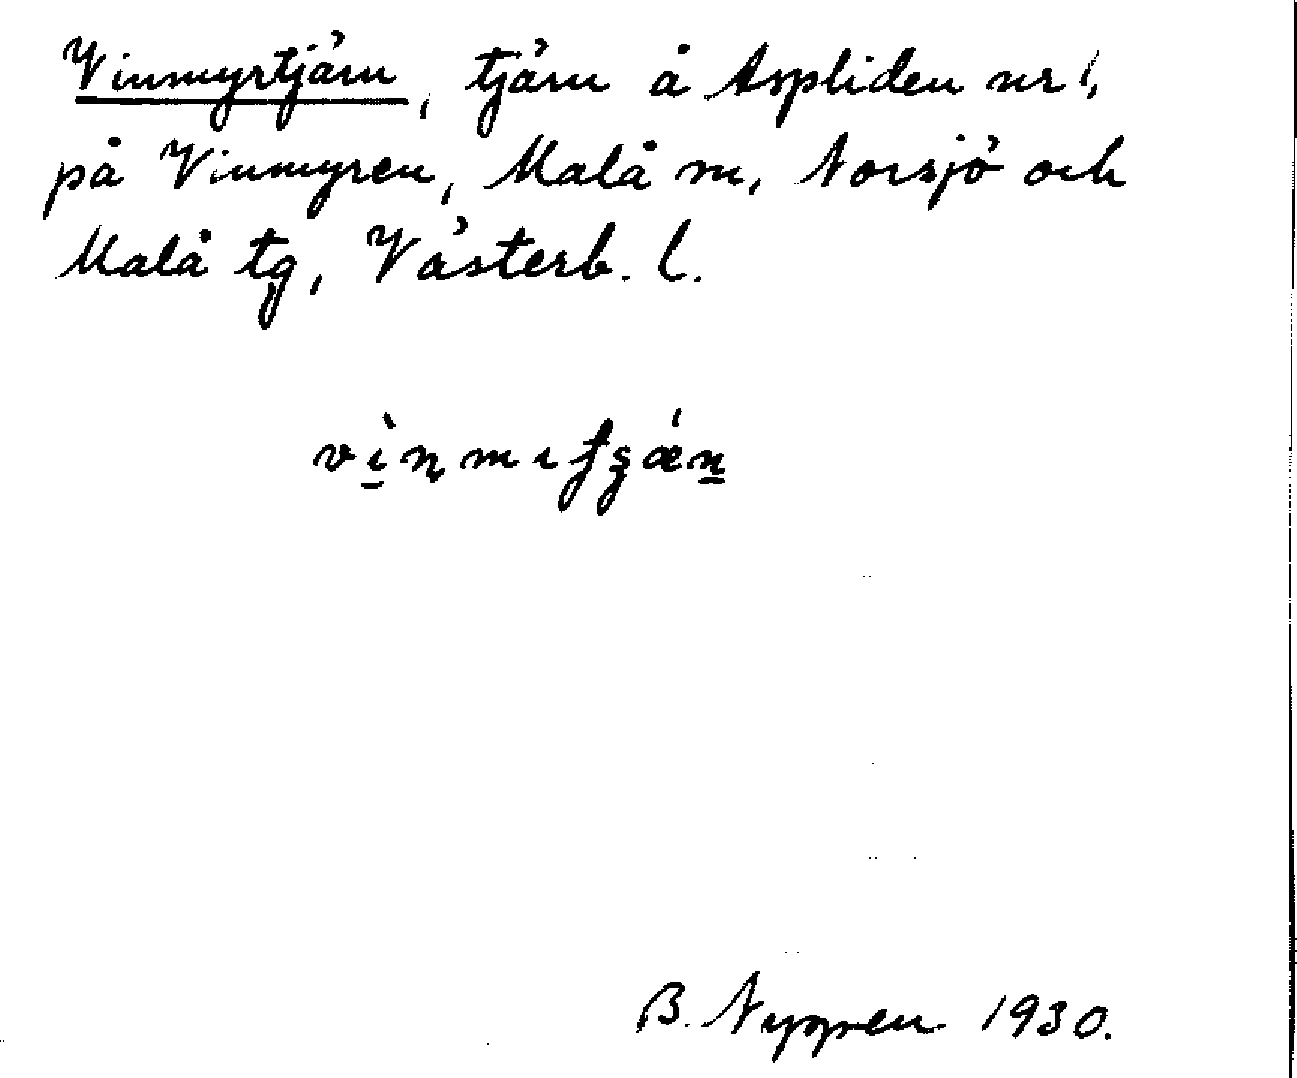 Vinmyrtjärn, tjärn å Aspliden nr 1,
på Vinmyren, Malå sn, Norsjö och
Malå tg, Västerb. l.
B. Nygren 1930.